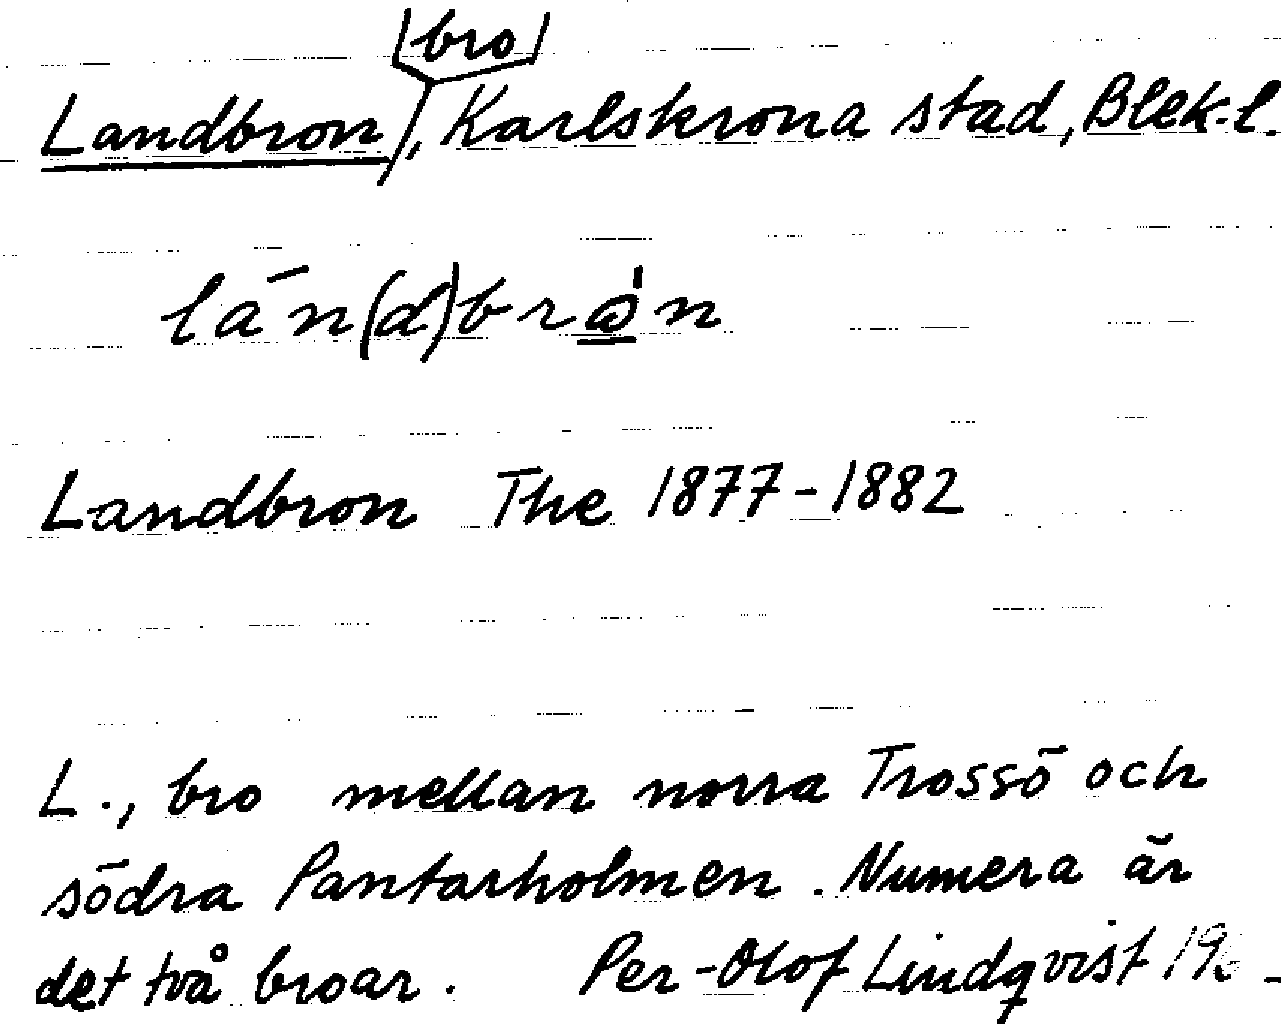 bro
Landbron, Karlskrona stad, Blek.l.
län(d)brώ̲n
Landbron The 1877-1882
L., bro mellan norra Trossö och
södra Pantarholmen. Numera är
det två broar. Per-Olof Lindqvist